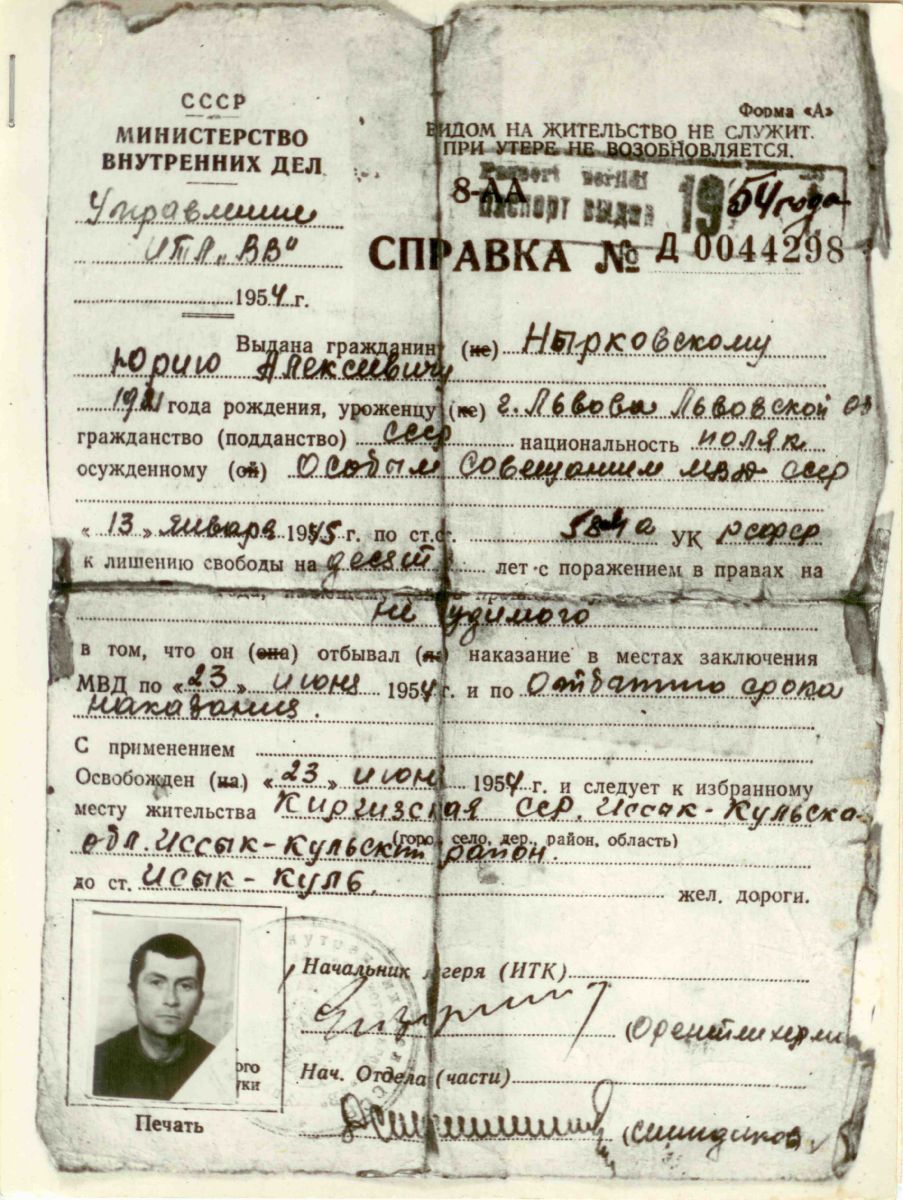 СССР
МИНИСТЕРСТВО
ВНУТРЕННИХ ДЕЛ
Управление
ИТЛ „ВВ"
1954 г.
Форма «А»
ВИДОМ НА ЖИТЕЛЬСТВО НЕ СЛУЖИТ.
ПРИ УТЕРЕ НЕ ВОЗОБНОВЛЯЕТСЯ.
8-АА
Паспорт выдан 1954 года
СПРАВКА № Д 0044298
Выдана гражданину (ке) Нырковскому
Юрию Алексеевичу
года рождения, уроженцу (ке) г. Львова Львовской
гражданство (подданство) СССР национальность поляк
осужденному (ой) Особым совещанием МВД СССР
« 13 » января 1945 г. по ст.ст. УК РСФСР
к лишению свободы на десят лет с поражением в правах на
не судимого
в том, что он (она) отбывал (ла) наказание в местах заключения
МВД по « 23 » июня 1954 г. и по Отбытию срока
наказания.
С применением
Освобожден (на) « 23 » июня 1954 г. и следует к избранному
месту жительства Киргизская ССР. Иссык-Кульска
(город, село, дер., район, область)
обл. Иссык-Кульский район.
до ст. Исык-Куль жел. дороги.
Начальник лагеря (ИТК)
Нач. Отдела (части)
Печать